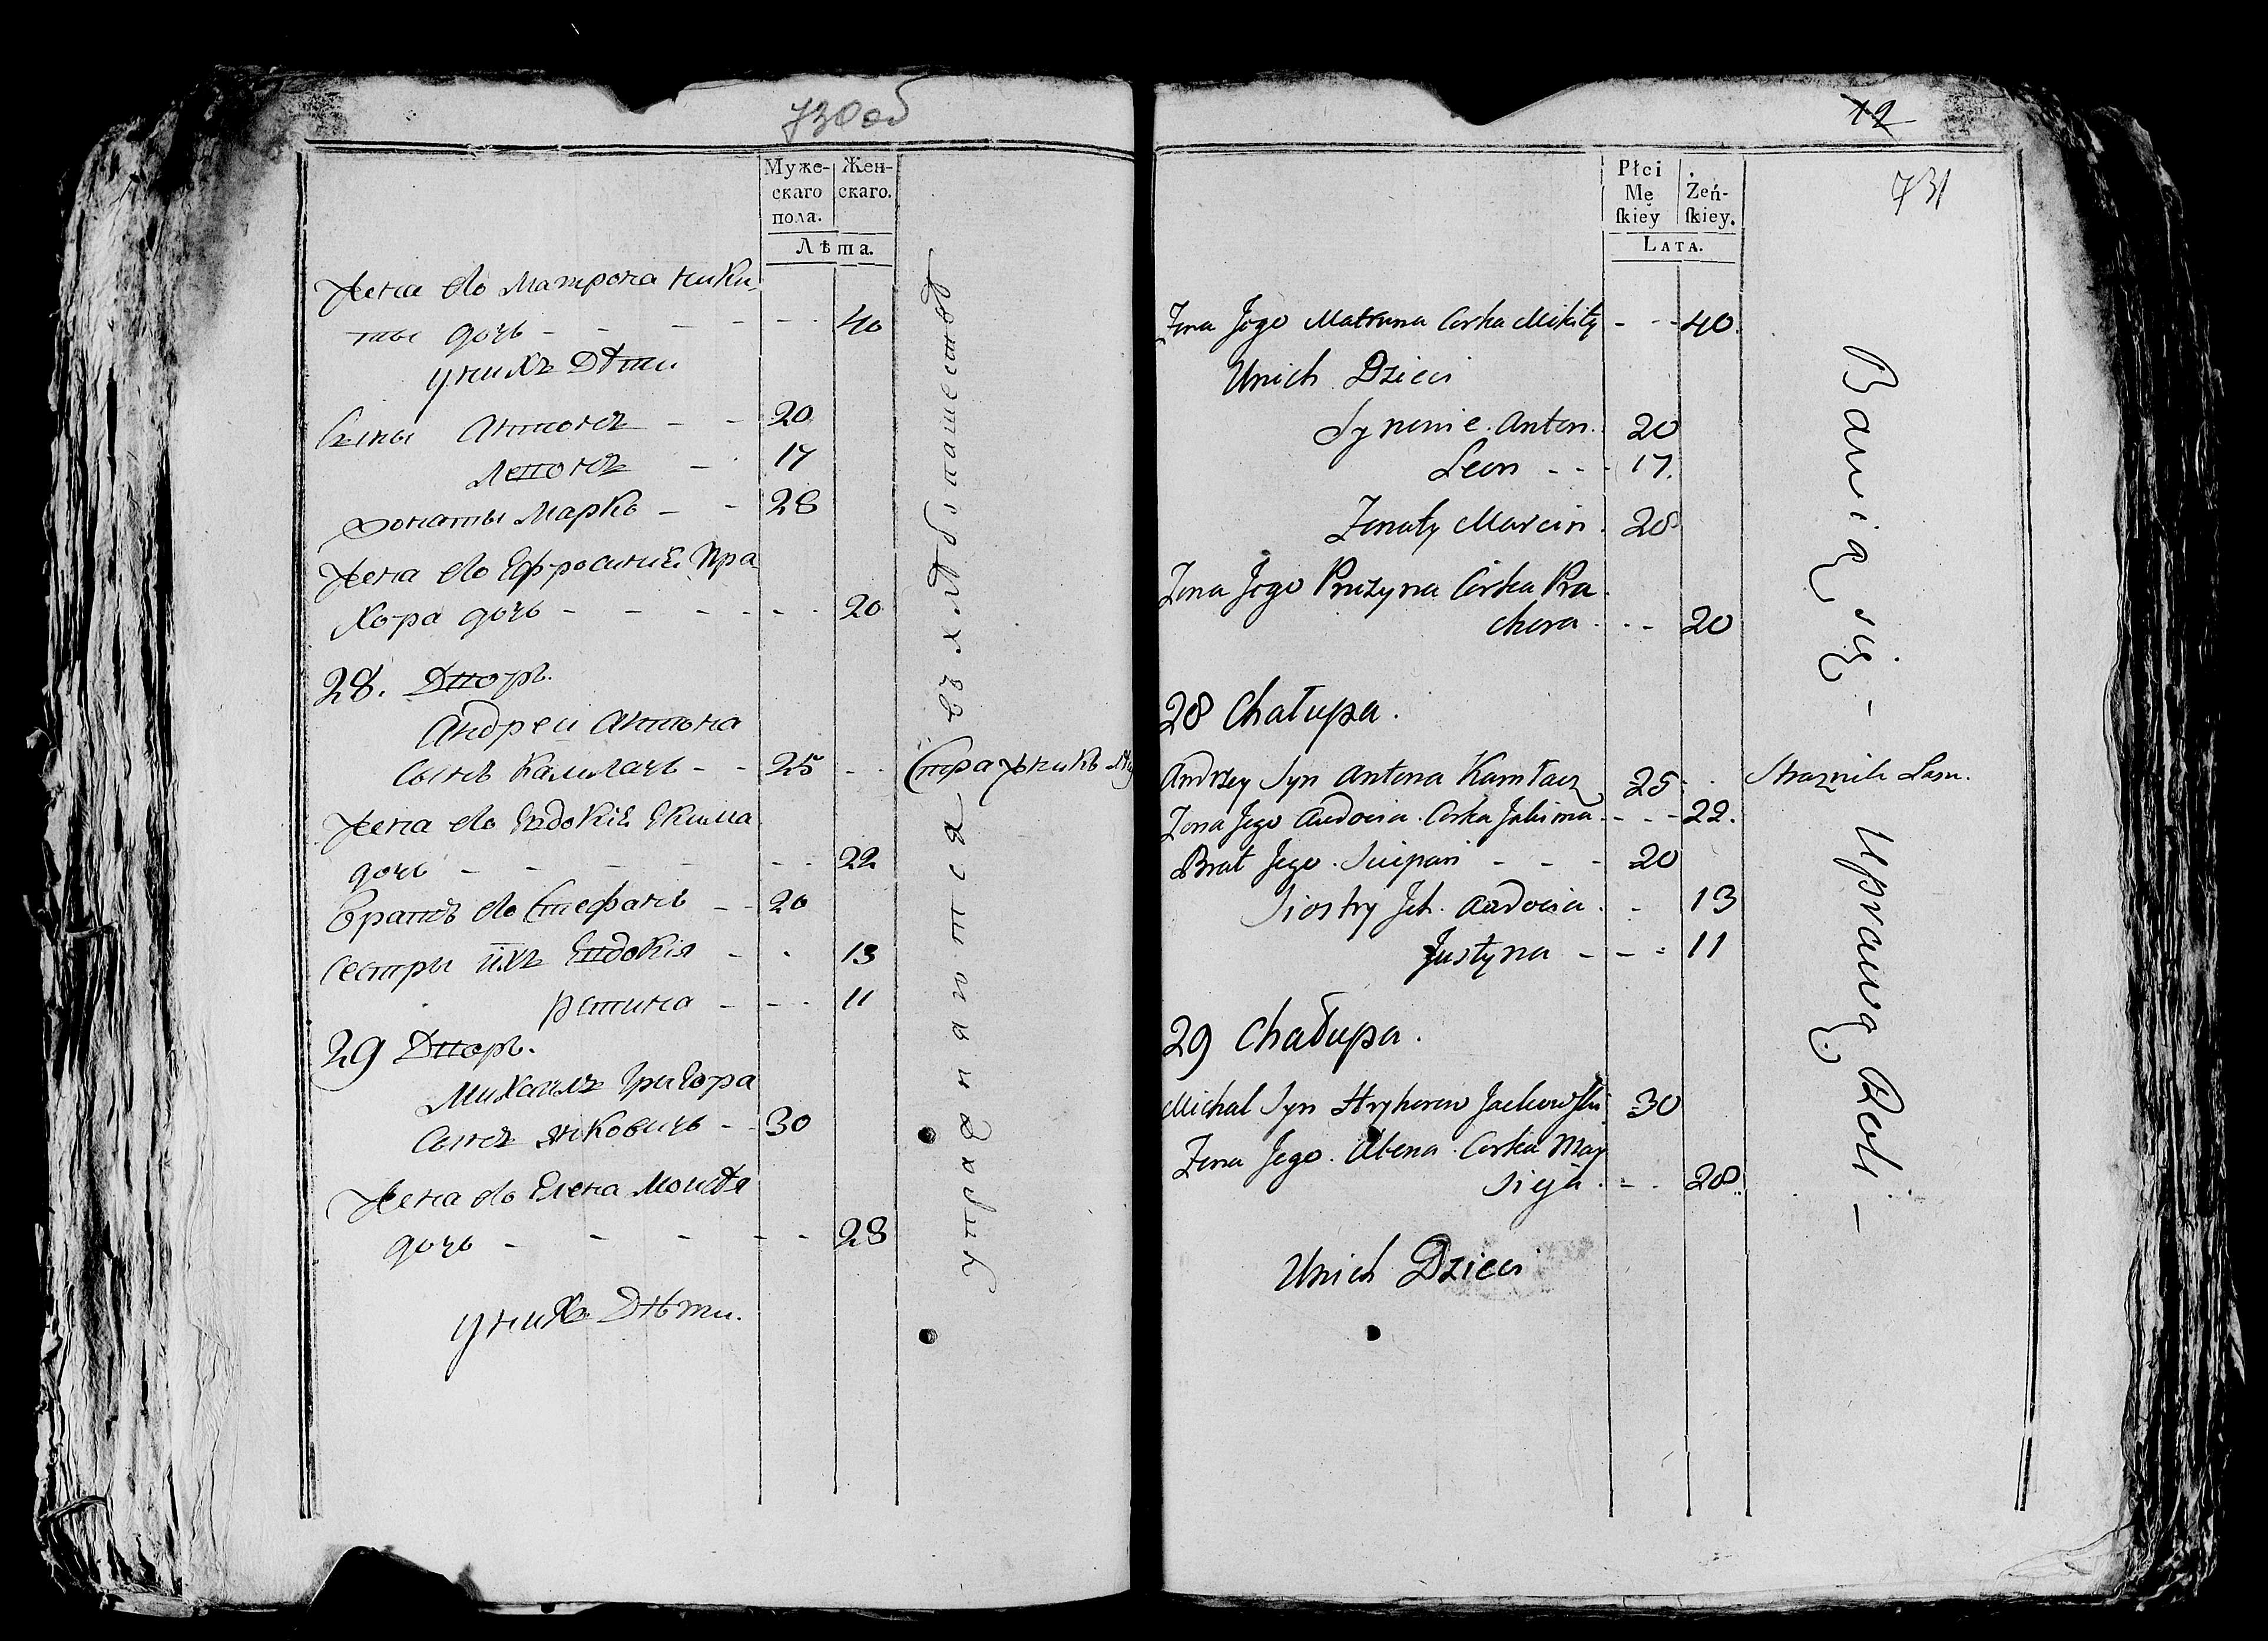 730об
Муже-
скаго
пола.
Жен-
скаго.
Лѣта.
Жена его Матрона Ники-
ты дочь - - - - - 40
у нихъ Дѣти.
Сыны Антонъ - - 20
Леонъ - - 17
Жонаты Марко - - 28
Жена его Ефросинія Пра
хора дочь - - - - 20
28. Дворъ.
Андрей Антона
Сынъ Камлачъ - - 25 - - Стражникъ
Жена его Евдокія Екима
дочь - - - - - 22
братъ его Стефанъ - - 20
сестры ихъ Евдокія - - 13
Устина - - - 11
29 Дворъ.
Михаилъ Григора
Сынъ Яковичъ - - 30
Жена его Елена Моисѣя
дочь - - - - - 28
у нихъ Дѣти.
упражняются въ хлѣбопашествѣ
12
731
Płci
Mę
ſkiey
Żeń-
ſkiey.
LATA.
Żona Jego Matruna Corka Mikity - - - 40.
Unich Dzieci
Synowie. Anton. 20
Leon - - - 17.
Żonaty Marcin. 28
Żona Jego Pruzyna Córka Pra
chora. - - 20
28 Chałupa.
Andrzey Syn Antona Kamłacz 25. . Straznik Lasu.
Żona Jego Audocia. Corka Jakima. - - - 22.
Brat Jego. Sciepan - - - 20
Siostry Ich. Audocia. - 13
Justyna - - - 11
29 Chałupa.
Michał Syn Hryhorow Jackowski 30
Żona Jego. Alena. Corka May
sieja. - . 28.
Unich Dzieci
Bawią się - Uprawą Roli -